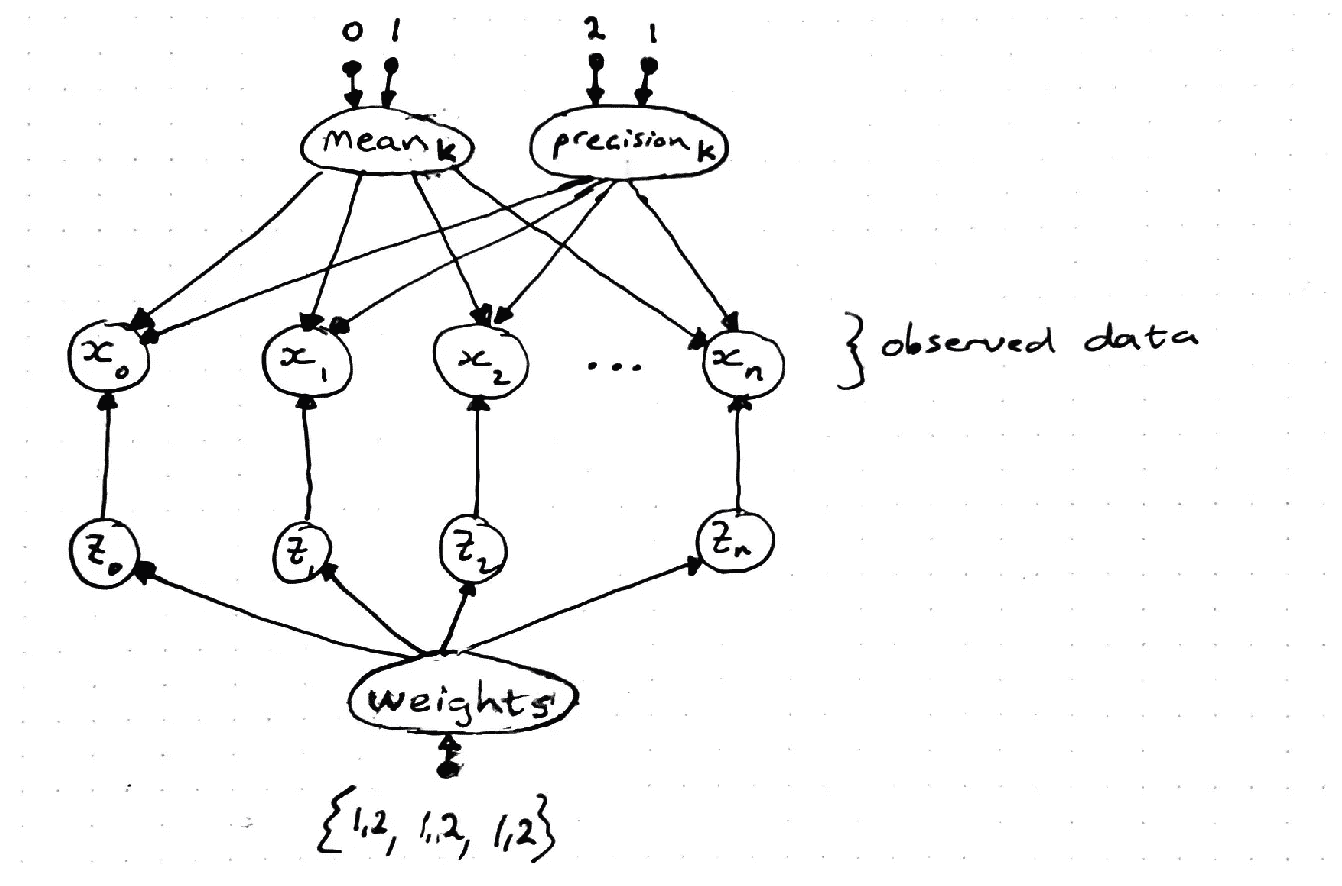 0 1 2 1
mean k precision k
x0 x1 x2 ... xn } observed data
z0 z1 z2 zn
weights
{1,2, 1,2, 1,2}